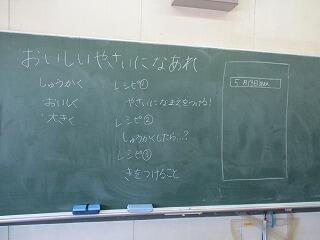 おいしいやさいになあれ
しゅうかく
おいしく
大きく
レシピ①
やさいになまえをつける!
レシピ②
しゅうかくしたら…?
レシピ③
きをつけること
5月19日